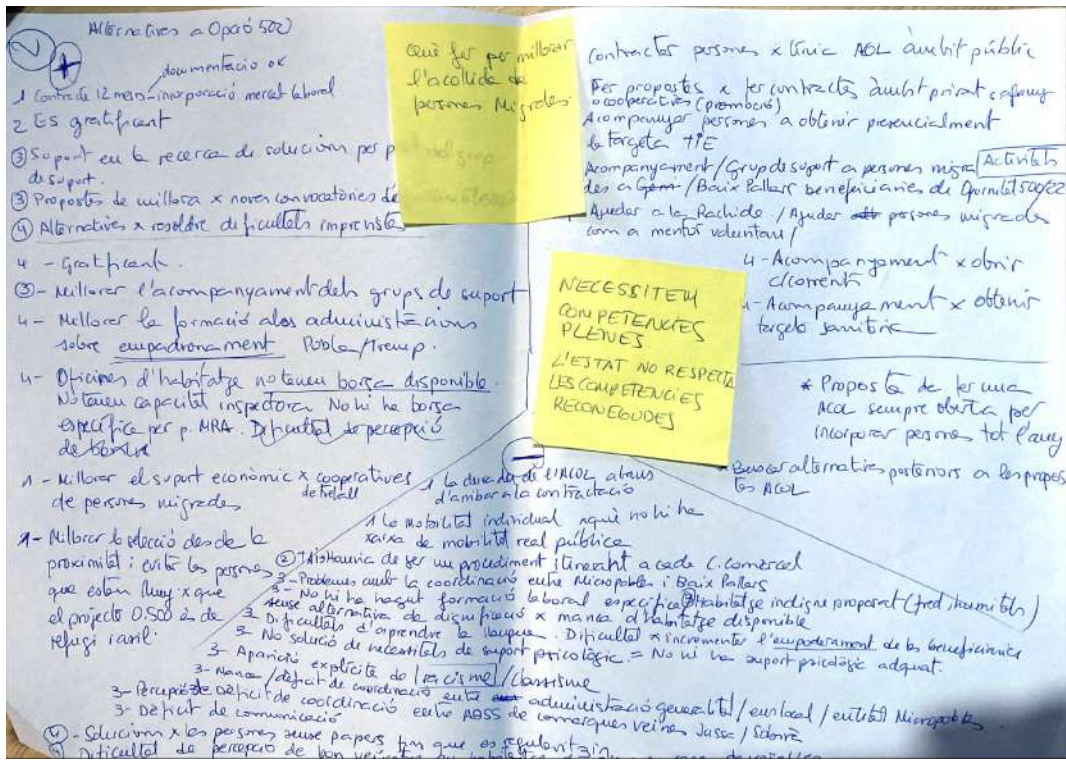 Alternatives a Opció 502
2
+
documentació ok
1 Contracte 12 mesos - incorporació mercat laboral
2 Es gratificant
3 Suport en la recerca de solucions per part del grup
de suport.
3 Propostes de millora x noves convocatòries de
4 Alternatives x resoldre dificultats imprevistes
4 - Gratificant.
3 - Millorar l'acompanyament dels grups de suport
4 - Millorar la formació a les administracions
sobre empadronament Pobla/Tremp.
4 - Oficines d'habitatge no tenen borsa disponible.
No tenen capacitat inspectora. No hi ha borsa
específica per p. MRA. Dificultat de percepció
de
1 - Millorar el suport econòmic x cooperatives
de treball
de persones migrades
1 - Millorar la selecció des de la
proximitat i evitar les persones
que estan lluny x que
el projecte 0.500 és de
refugi rural.
Què fer per millorar
l'acollida de
persones Migrades.
contractes persones x línia ACOL àmbit públic
Fer propostes x fer contractes àmbit privat
o cooperatives (promoció)
Acompanyar persones a obtenir presencialment
la targeta TIE
Activitats
Acompanyament/Grup de suport a persones migra
des a Gerri/Baix Pallars beneficiàries de Oportunitat 500/22
Ajudar a la Rachida / Ajudar persones migrades
com a mentor voluntari/
4 - Acompanyament x obrir
c/corrent
4 - Acompanyament x obtenir
targeta sanitària
NECESSITEM
COMPETENCIES
PLENES
L'ESTAT NO RESPECTA
LES COMPETENCIES
RECONEGUDES
* Proposta de fer una
ACOL sempre oberta per
incorporar persones tot l'any
* Buscar alternatives posteriors a les propos
tes ACOL
-
1 La durada de l'ACOL abans
d'arribar a la contractació
1 La mobilitat individual aquí no hi ha
xarxa de mobilitat real pública
2 Hauria de ser un procediment itinerant a cada C. comarcal
3 - Problemes amb la coordinació entre Micropobles i Baix Pallars
3 - No hi ha hagut formació laboral específica
3 Habitatge indigne proposat (fred, humitats)
sense alternativa de dignificació x manca d'habitatge disponible
3 Dificultats d'aprendre la llengua. Dificultat x incrementar l'empoderament de les beneficiàries
3 - No solució de necessitats de suport psicològic = No hi ha suport psicològic adequat.
3 - Aparició explícita de racisme/classisme
3 - Manca/dèficit de coordinació entre administració generalitat/ens local/entitat Micropobles.
3 - Percepció de Dèficit de coordinació entre ABSS de comarques veïnes Jussà/Sobirà
3 - Dèficit de comunicació
4 - Solucions x les persones sense papers fins que es regularitzin
4 Dificultat de percepció de bon